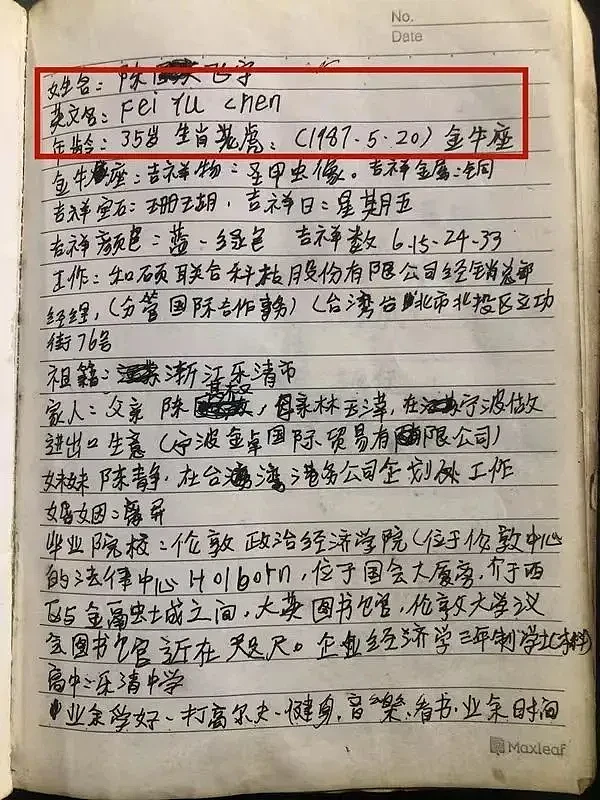 No.
Date
姓名：陈飞宇
英文名：Fei Yu Chen
年龄：35岁 生肖老虎：（1987.5.20）金牛座
金牛座：吉祥物：圣甲虫像。吉祥金属：铜
吉祥宝石：珊瑚，吉祥日：星期五
吉祥颜色：蓝-绿色 吉祥数 6.15-24-33
工作：和硕联合科技股份有限公司经销总部
经理，（分管国际合作事务）（台湾台北市北投区立功
街76号
祖籍：浙江乐清市
家人：父亲 陈，母亲林玉萍，在宁波做
进出口生意（宁波金卓国际贸易有限公司）
妹妹 陈静，在台湾港务公司企划处工作
婚姻：离异
毕业院校：伦敦政治经济学院（位于伦敦中心
的法律中心Holborn，位于国会大厦旁，介于西
区与金融城之间，大英图书馆，伦敦大学议
会图书馆近在咫尺。企业经济学三年制学士（本科）
高中：乐清中学
业余爱好-打高尔夫-健身，音乐，看书.业余时间
Maxleaf